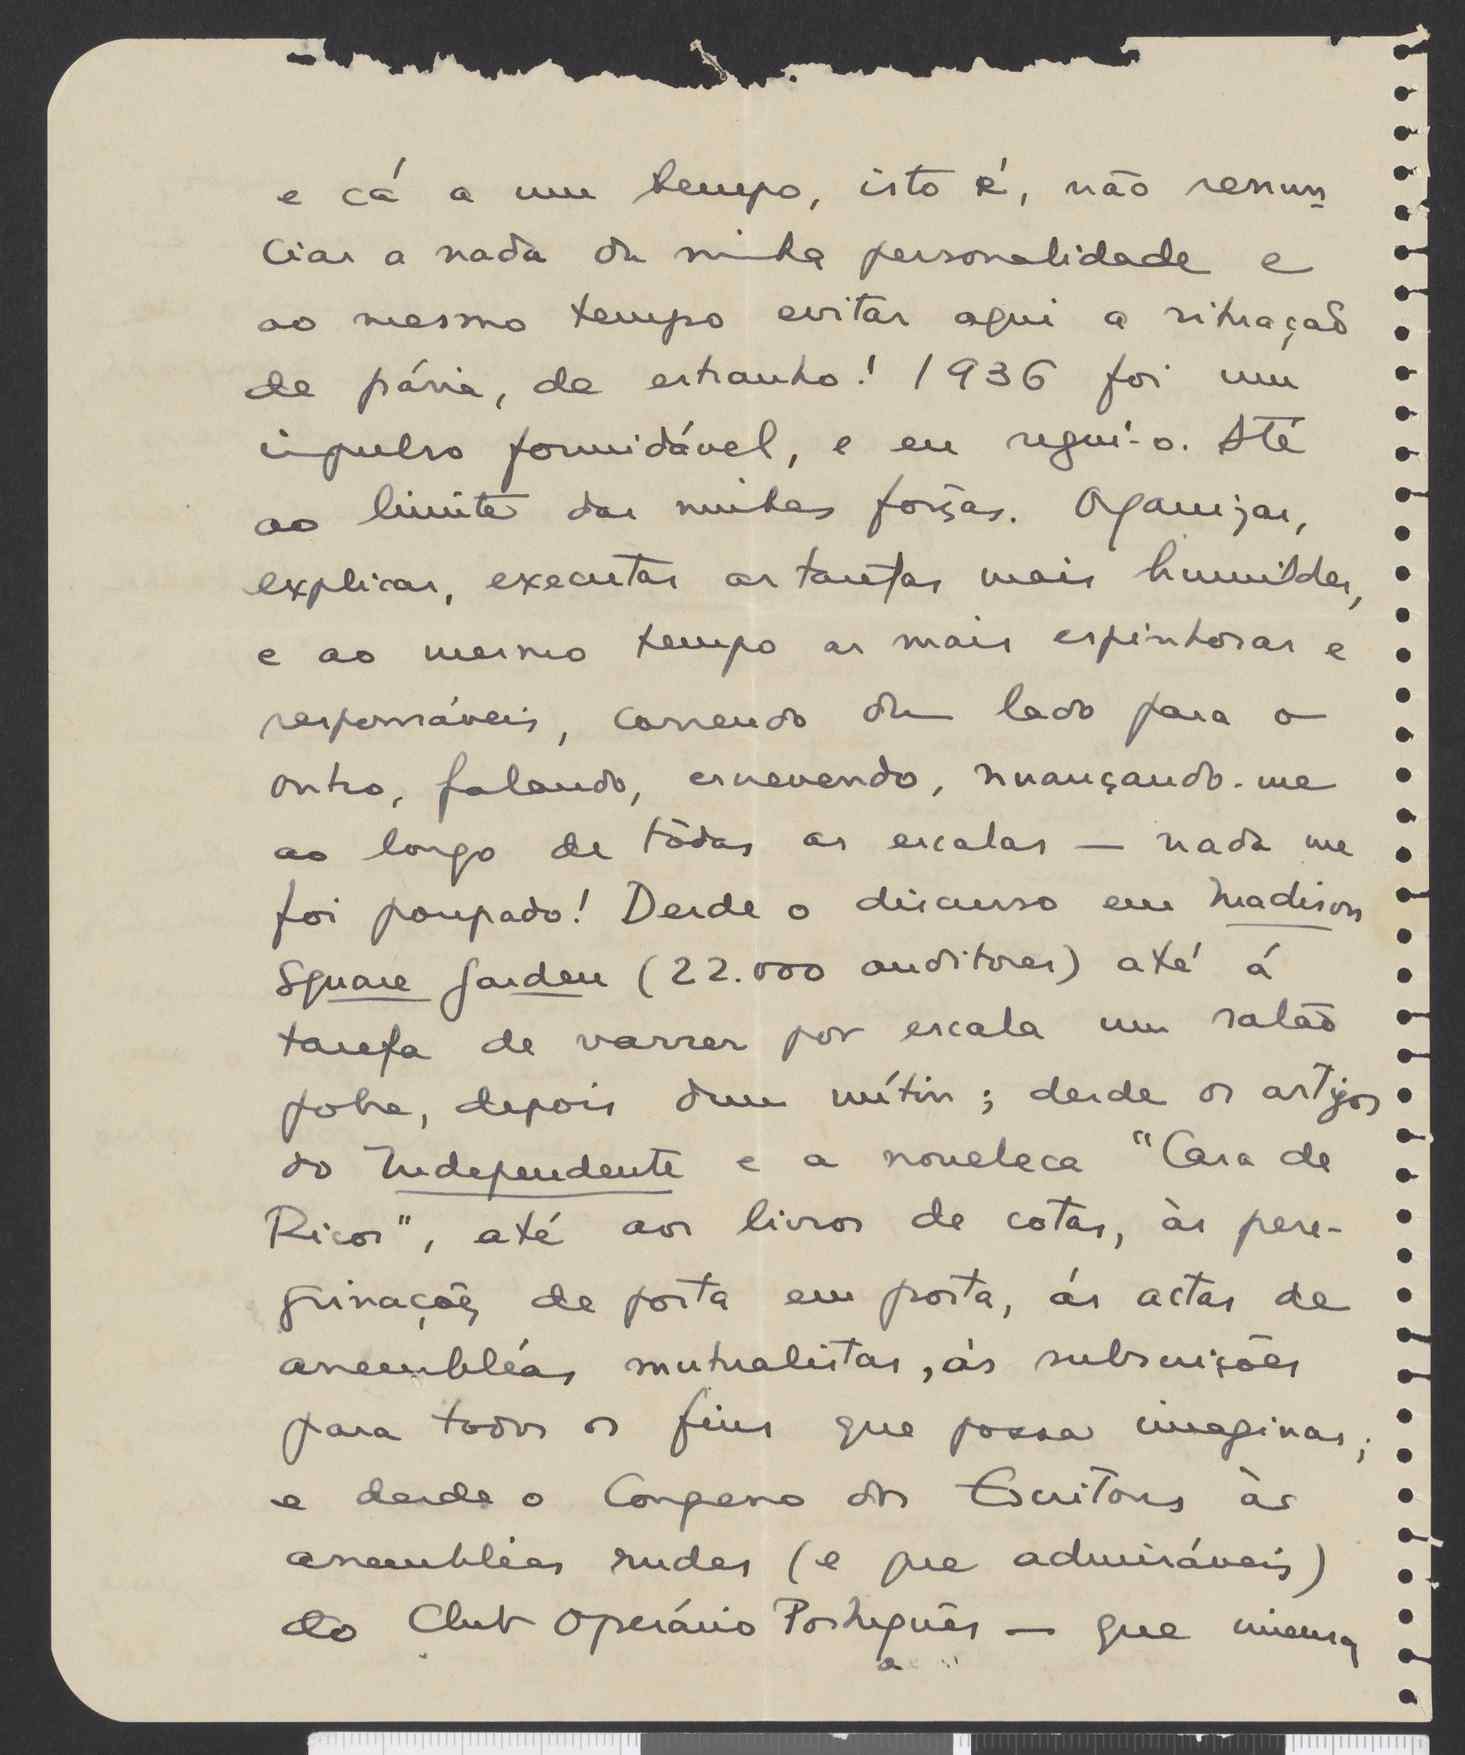 e cá a um tempo, isto é, não renun-
ciar a nada da minha personalidade e
ao mesmo tempo evitar aqui a situação
de pária, de estranho! 1936 foi um
impulso formidável, e eu segui-o. Até
ao limite das minhas forças. Organizar,
explicar, executar as tarefas mais humildes,
e ao mesmo tempo as mais espinhosas e
responsáveis, correndo dum lado para o
outro, falando, escrevendo, nuançando-me
ao longo de tôdas as escalas — nada me
foi poupado! Desde o discurso em Madison
Square Garden (22.000 auditores) até á
tarefa de varrer por escala um salão
pobre, depois dum mítin; desde os artigos
do Independente e a noveleca "Casa de
Ricos", até aos livros de cotas, às pere-
grinações de porta em porta, ás actas de
assembléas mutualistas, às subscrições
para todos os fins que possa imaginar;
e desde o Congresso dos Escritores às
assembléas rudes (e que admiráveis)
do Club Operário Português — que imensa